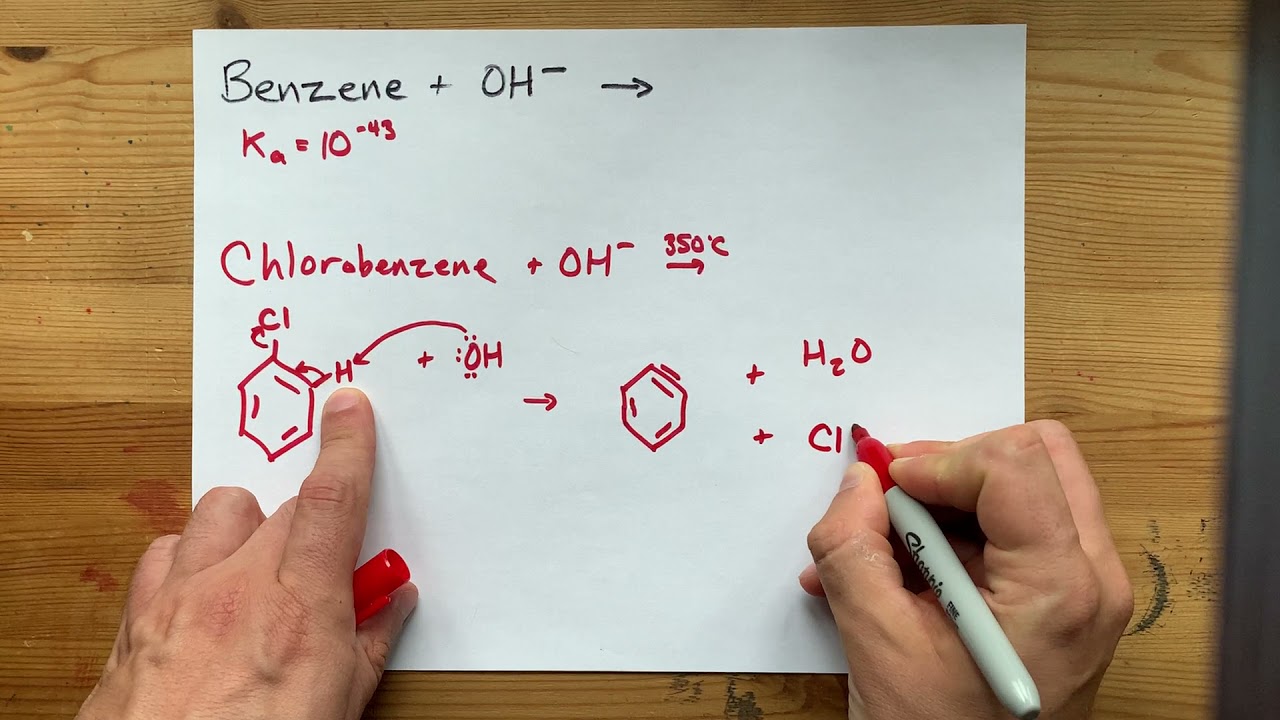 Benzene + OH⁻ →
Kₐ = 10⁻⁴³
Chlorobenzene + OH⁻ 350°C →
Cl
H + :ÖH → + H₂O
+ Cl
Sharpie FINE